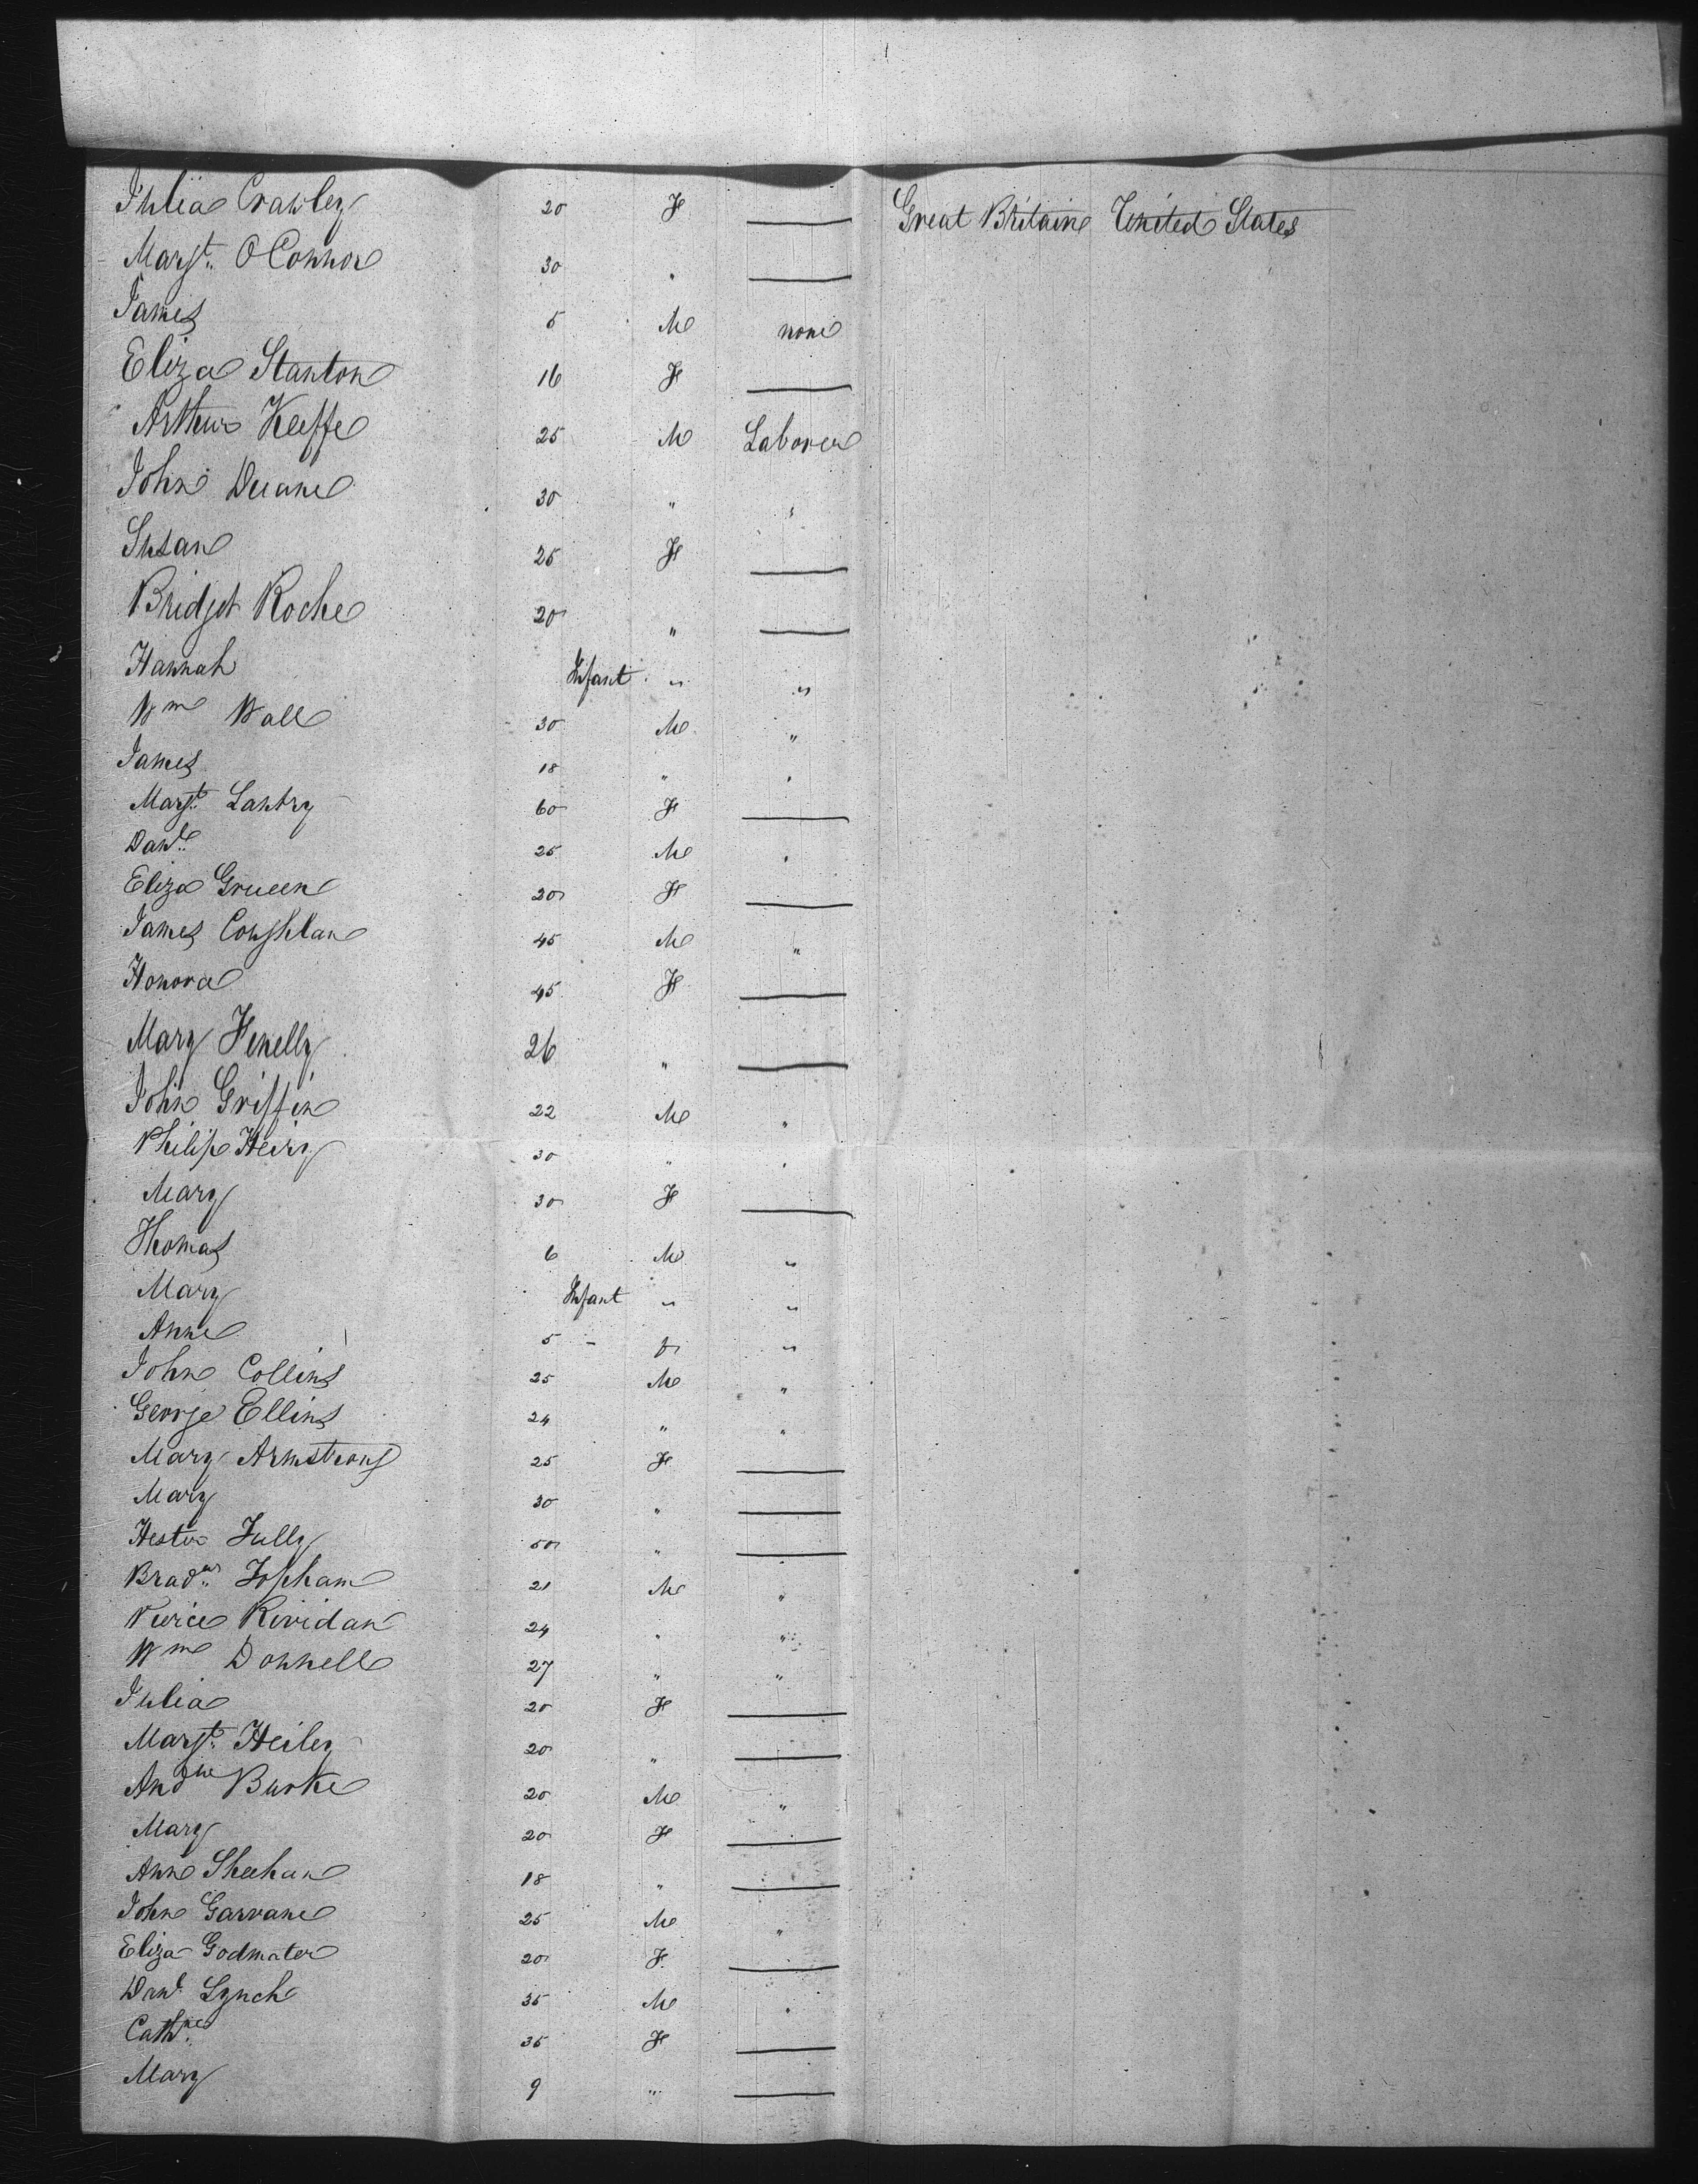 Julia Crawley 20 F —— Great Britain United States
Margt. O Connor 30 " ——
James 5 M none
Eliza Stanton 16 F ——
Arthur Keeffe 25 M Laborer
John Duane 30 " "
Susan 25 F ——
Bridget Roche 20 " ——
Hannah Infant " "
Wm Wall 30 M "
James 18 " "
Margt. Lantry 60 F ——
Danl. 25 M "
Eliza Grueen 20 F ——
James Coughlan 45 M "
Honora 45 F ——
Mary Fenelly 26 " ——
John Griffin 22 M "
Philip Heiry 30 " "
Mary 30 F ——
Thomas 6 M "
Mary Infant " "
Anne 5 F "
John Collins 25 M "
George Ellins 24 " "
Mary Armstrong 25 F ——
Mary 30 " ——
Hester Fully 50 " ——
Bradw. Topham 21 M "
Pierce Rividan 24 " "
Wm Donnell 27 " "
Julia 20 F ——
Margt. Heiley 20 " ——
Andw Burke 20 M "
Mary 20 F ——
Anne Sheehan 18 " ——
John Garvane 25 M "
Eliza Godmater 20 F ——
Danl. Lynch 35 M "
Cathne. 35 F ——
Mary 9 " ——